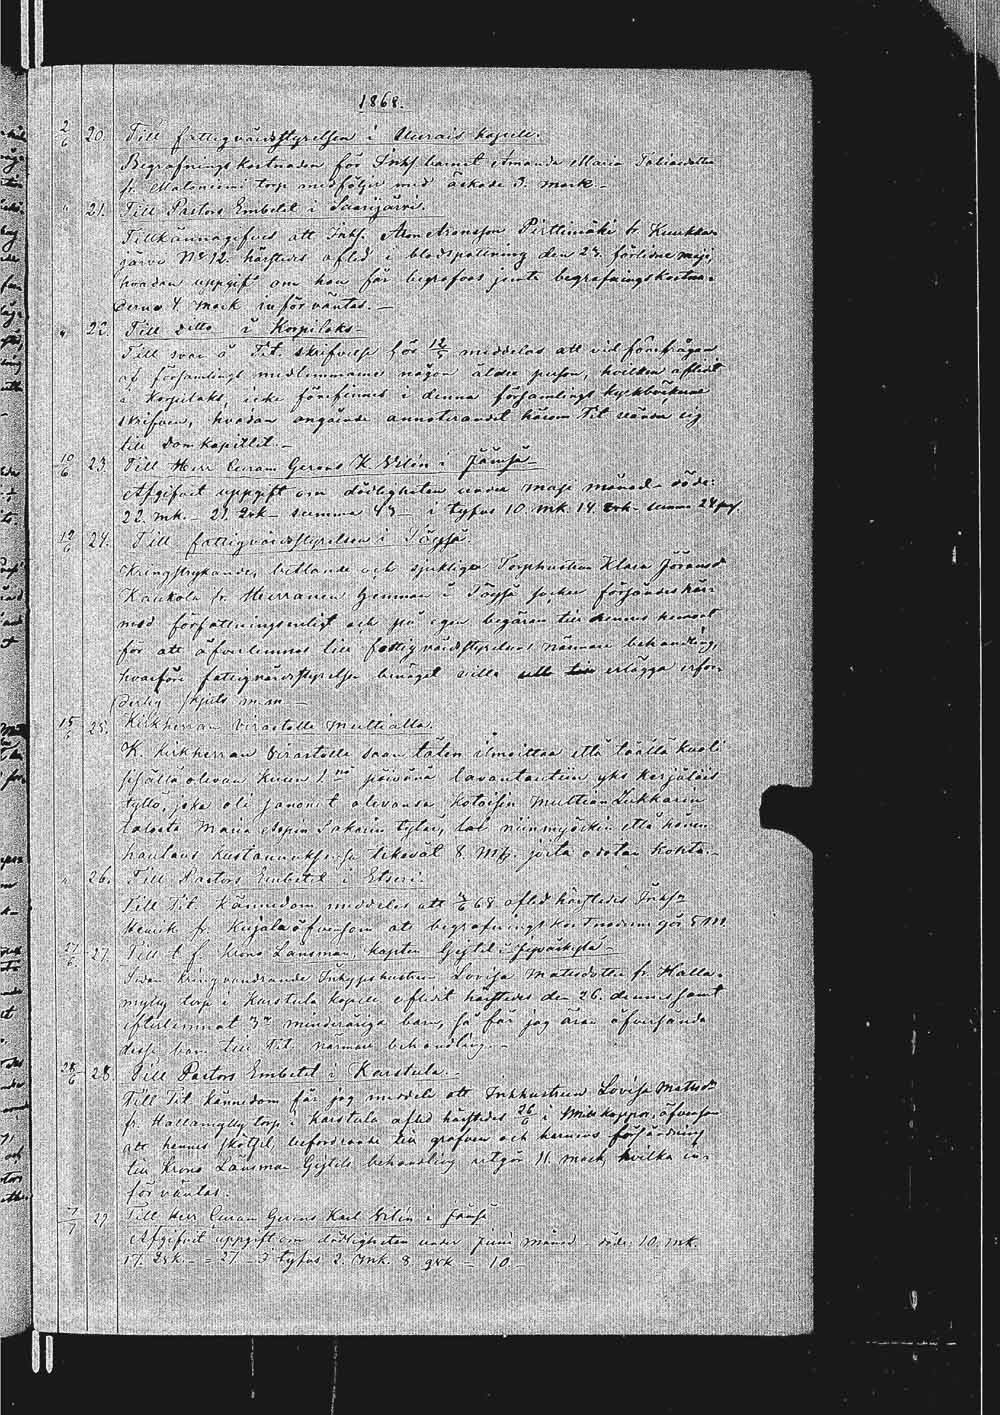 1868.
2/6 20. Till fattigvårdsstyrelsen i Uurais kapell.
Begrafningskostnaden för Inhs barnet Amanda Maria Tobiasdotter
fr. Maloniemi torp medföljer med äskade 3. mark –
21. Till Pastors Embetet i Saarijärvi.
Tillkännagifves att Inhs. Aron Aronsson Pirttimäki fr.
järvi No 12. härstedes afled i blodspottning den 23. förlidne maji,
hvadan uppgift om han får begrafvas jemte begrafningskostna-
derna 4 mark införväntas. –
22. Till ditto i Korpilaks –
Till svar å Tit. skrifvelse för 12/5 meddelas att vid förefrågan
af församlings medlemmarne någon äldre person, hvilken aflidit
i Korpilaks, icke förefinnes i denna församlings kyrkböckerne
skrifven, hvadan angående annoterandet härom Tit vände sig
till Domkapitlet. –
10/6 23. Till Herr Curam Gerens K. Wilén i Jämsä –
Afgifvit uppgift om dödligheten under maji månad – döde:
22. mk. – 21. qvk – summa 43 – i tyfus 10 mk. 14. qvk – summa 24
12/6 24. Till fattigvårdsstyrelsen i Töysä.
Kringstrykande, betlande och sjukliga Torphustrun Klara Jöransd
Kaukola fr. Herranen hemman i Töysä socken försändes här-
med författningsenligt och på egen begäran till hennes hemort
för att öfverlemnas till fattigvårdsstyrelsens närmare behandling,
hvarföre fattigvårdsstyrelsen benäget ville erlägga erfor-
derlig skjuts m.m –
15/6 25. Kirkherran Virastolle Multialla.
K. Kirkherran Virastolle saan täten ilmoittaa että täällä kuoli
sisällä olevan kuun 1 nä päivänä lavantautiin yks kerjäläis
tyttö, joka oli sanonut olevansa kotoisin Multian Lukkarin
talosta Maria Sakarin tytär, tai niinmyöskin että hänen
hautaus kustannuksensa tekevät 8 Mk. joita odotan kohta. –
26. Till Pastors Embetet i Etseri.
Till Tit. kännedom meddelas att 68 afled härstedes Inhsn
Henrik fr. Kujala äfvensom att begrafningskostnaderna gör 8 M.
27/6 27. Till t.f. Krono Länsman, kapiten Gejtel i Jyväskylä –
Sedan kringvandrande Inhyseshustrun Lovisa Mattsdotter fr. Halla-
mylly torp i Karstula kapell aflidit härstedes den 26. dennes samt
efterlemnat 3ne minderåriga barn, så får jag äran öfversända
desse barn till Tit. närmare behandling. –
28/6 28. Till Pastors Embetet i Karstula. –
Till Tit kännedom får jag meddela att Inhhustrun Lovisa Mattsdr
fr. Hallamylly torp i Karstula afled härstedes 26/6 i äfvensom
att hennes befordrande till grafven och hennes försändning
till Krono Länsman Gejtels behandling utgör 11. mark, hvilka in-
förväntas.
7/7 29. Till Herr Curam Gerens Karl Wilén i Jämsä
Afgifvit uppgift om dödligheten under Juni månad – döde: 10. mk.
17. qvk. – = 27 – i tyfus 2. mk. 8 qvk – 10 –